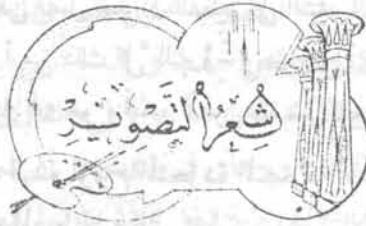 شِعْرُ التَّصْوِيْرِ